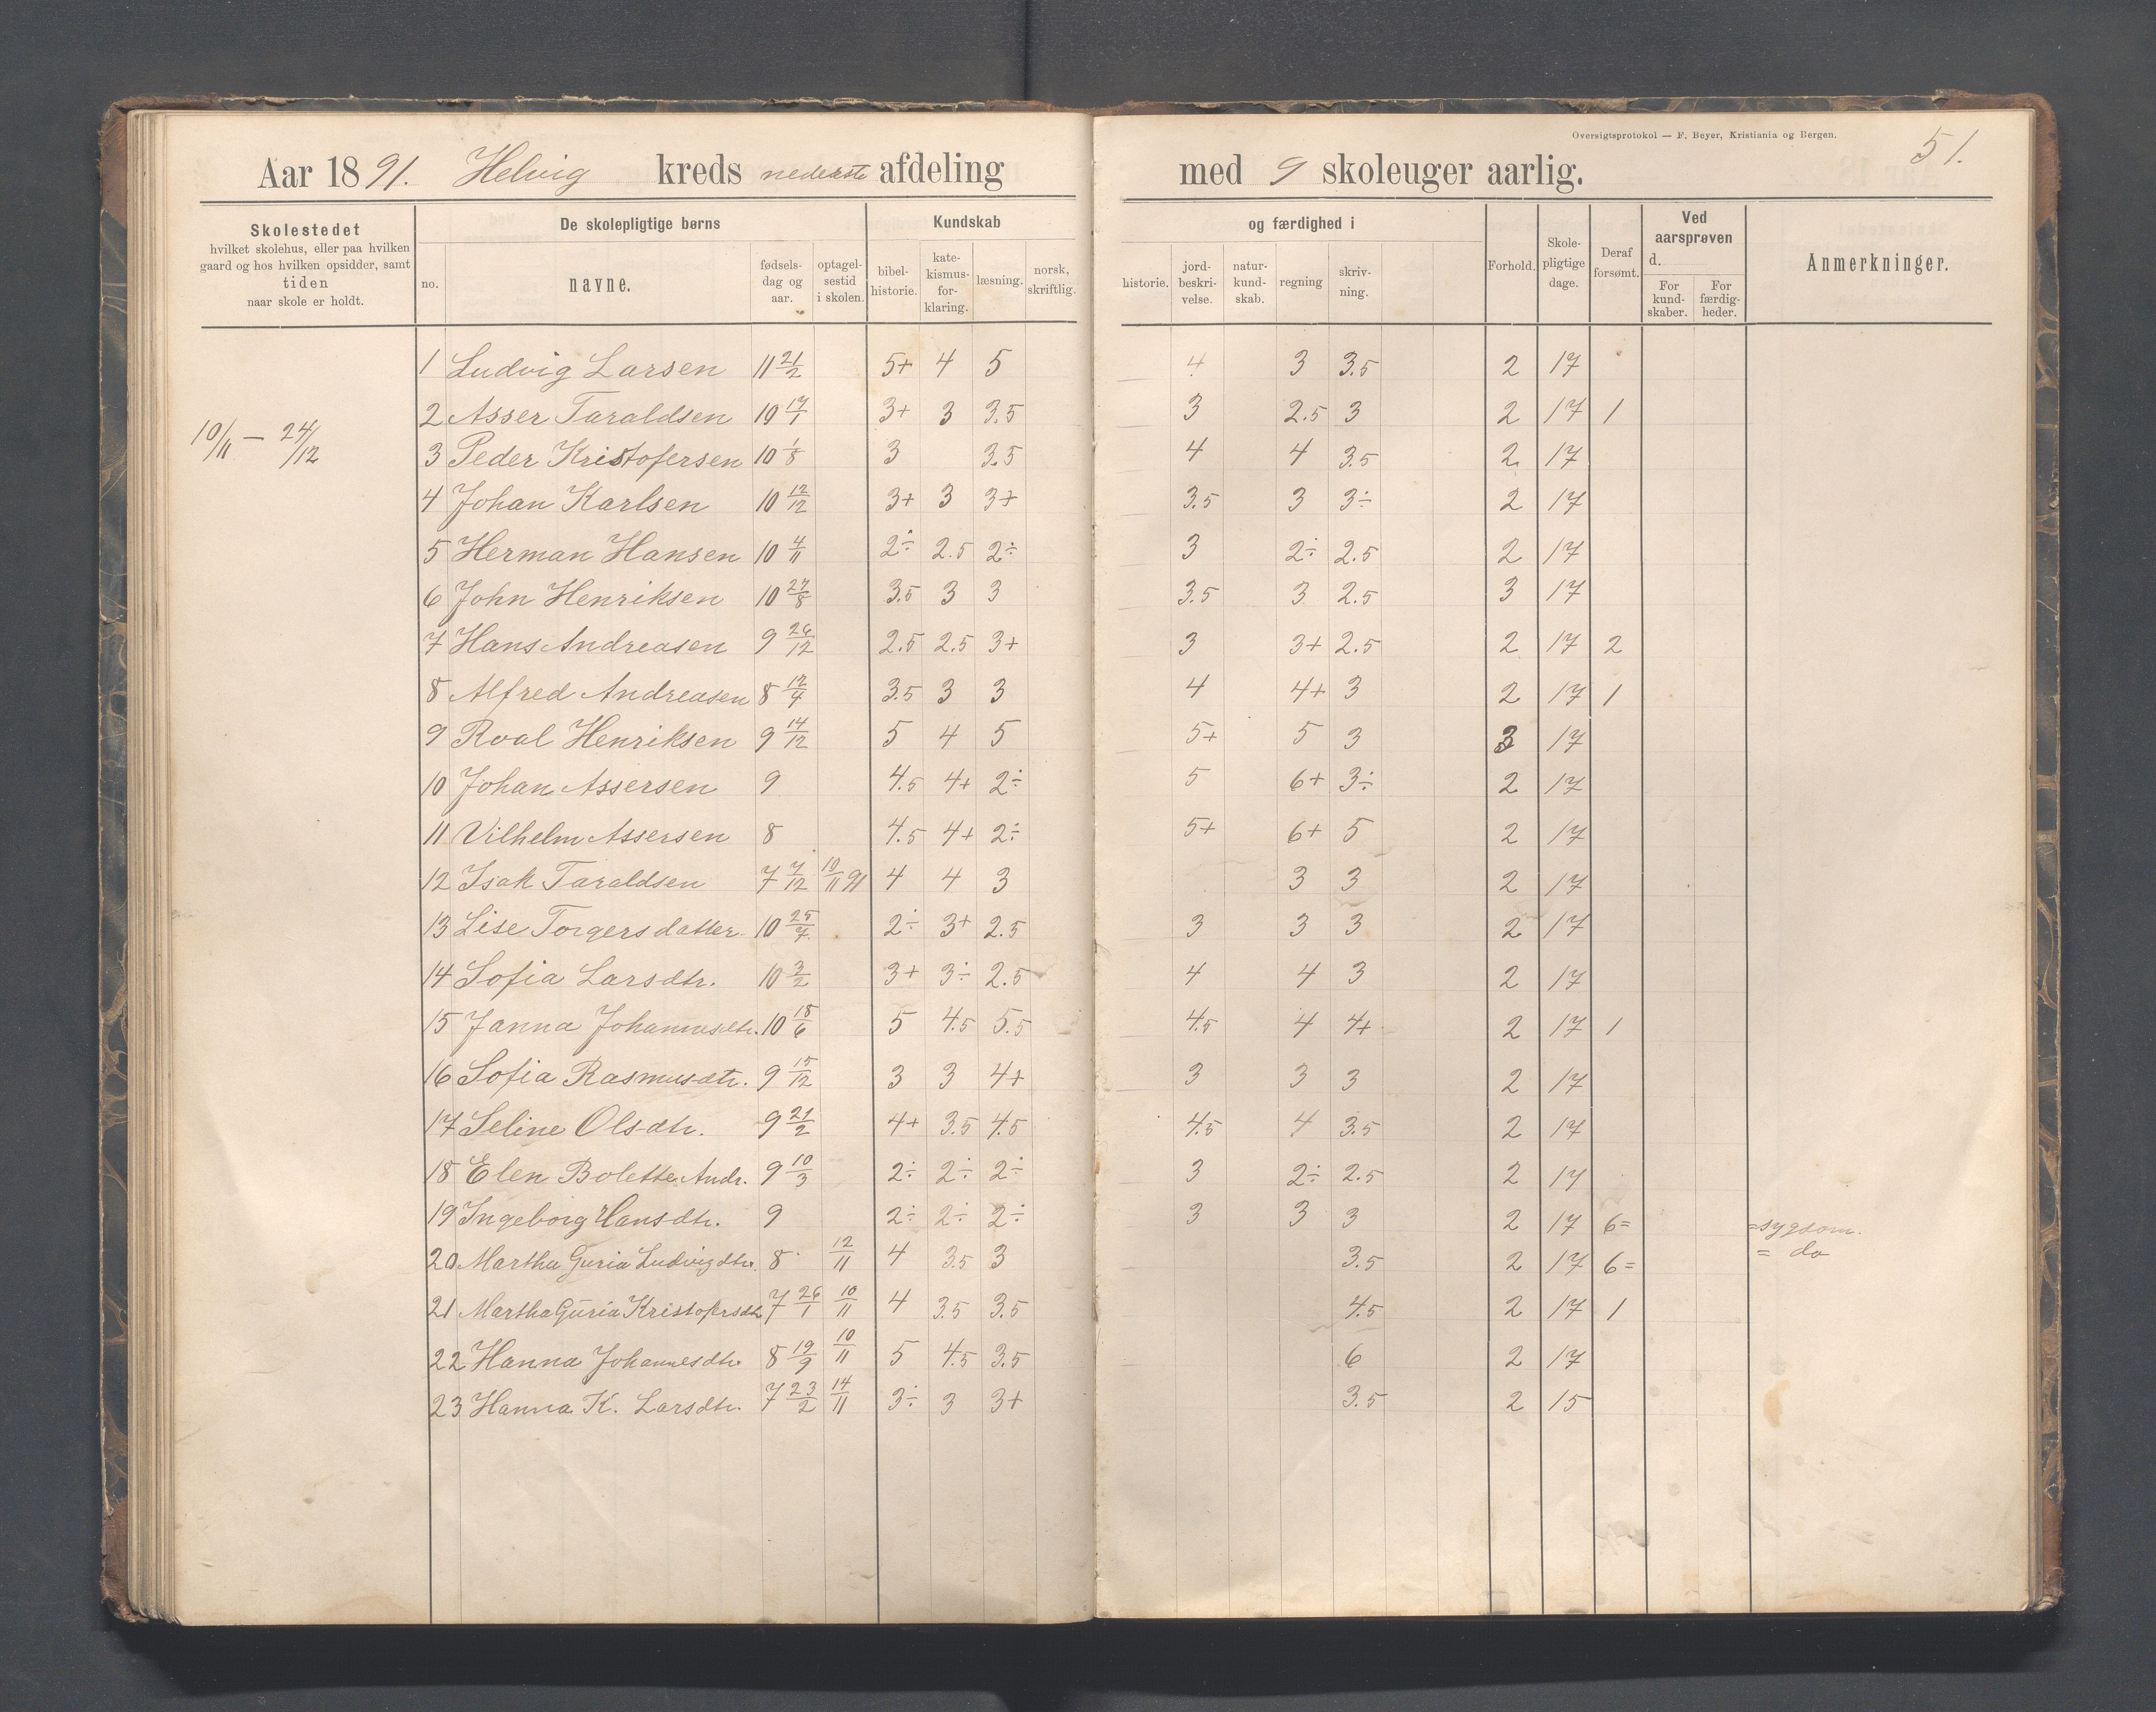 Oversigtsprotokol — F. Beyer, Kristiania og Bergen.
51.
Aar 1891. Helvig kreds nederste afdeling med 9 skoleuger aarlig.
Skolestedet hvilket skolehus, eller paa hvilken gaard og hos hvilken opsidder, samt tiden naar skole er holdt.
De skolepligtige børns
no. navne. fødsels-dag og aar. optagel-sestid i skolen.
Kundskab og færdighed i
bibel-historie. kate-kismus-for-klaring. læsning. norsk, skriftlig. historie. jord-beskri-velse. natur-kund-skab. regning skriv-ning.
Forhold. Skole-pligtige dage. Deraf forsømt.
Ved aarsprøven d.
For kund-skaber. For færdig-heder.
Anmerkninger.
10/11 — 24/12
1 Ludvig Larsen 11 21/2 5+ 4 5 4 3 3.5 2 17
2 Asser Taraldsen 10 17/1 3+ 3 3.5 3 2.5 3 2 17 1
3 Peder Kristofersen 10 1/8 3 3.5 4 4 3.5 2 17
4 Johan Karlsen 10 12/12 3+ 3 3+ 3.5 3 3÷ 2 17
5 Herman Hansen 10 4/11 2÷ 2.5 2÷ 3 2÷ 2.5 2 17
6 John Henriksen 10 27/8 3.5 3 3 3.5 3 2.5 3 17
7 Hans Andreasen 9 26/12 2.5 2.5 3+ 3 3+ 2.5 2 17 2
8 Alfred Andreasen 8 12/4 3.5 3 3 4 4+ 3 2 17 1
9 Roal Henriksen 9 14/12 5 4 5 5+ 5 3 3 17
10 Johan Assersen 9 4.5 4+ 2÷ 5 6+ 3÷ 2 17
11 Vilhelm Assersen 8 4.5 4+ 2÷ 5+ 6+ 5 2 17
12 Isak Taraldsen 7 7/12 10/11 91 4 4 3 3 3 2 17
13 Lise Torgersdatter 10 25/7 2÷ 3+ 2.5 3 3 3 2 17
14 Sofia Larsdtr. 10 3/2 3+ 3÷ 2.5 4 4 3 2 17
15 Janna Johannesdtr. 10 18/6 5 4.5 5.5 4.5 4 4+ 2 17 1
16 Sofia Rasmusdtr. 9 15/12 3 3 4+ 3 3 3 2 17
17 Seline Olsdtr. 9 21/2 4+ 3.5 4.5 4.5 4 3.5 2 17
18 Elen Bolette Andr. 9 10/3 2÷ 2÷ 2÷ 3 2÷ 2.5 2 17
19 Ingeborg Hansdtr. 9 2÷ 2÷ 2÷ 3 3 3 2 17 6= =sygdom.
20 Martha Guria Ludvigdtr. 8 12/11 4 3.5 3 3.5 2 17 6= = do
21 Martha Guria Kristofersdtr 7 26/1 10/11 4 3.5 3.5 4.5 2 17 1
22 Hanna Johannesdtr. 8 19/9 10/11 5 4.5 3.5 6 2 17
23 Hanna K. Larsdtr. 7 23/2 14/11 3÷ 3 3+ 3.5 2 15